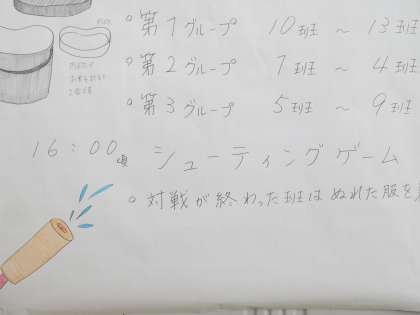 ○ 第1グループ 10班 ～ 13班
○ 第2グループ 1班 ～ 4班
○ 第3グループ 5班 ～ 9班
16:00頃 シューティングゲーム
○ 対戦が終わった班はぬれた服を